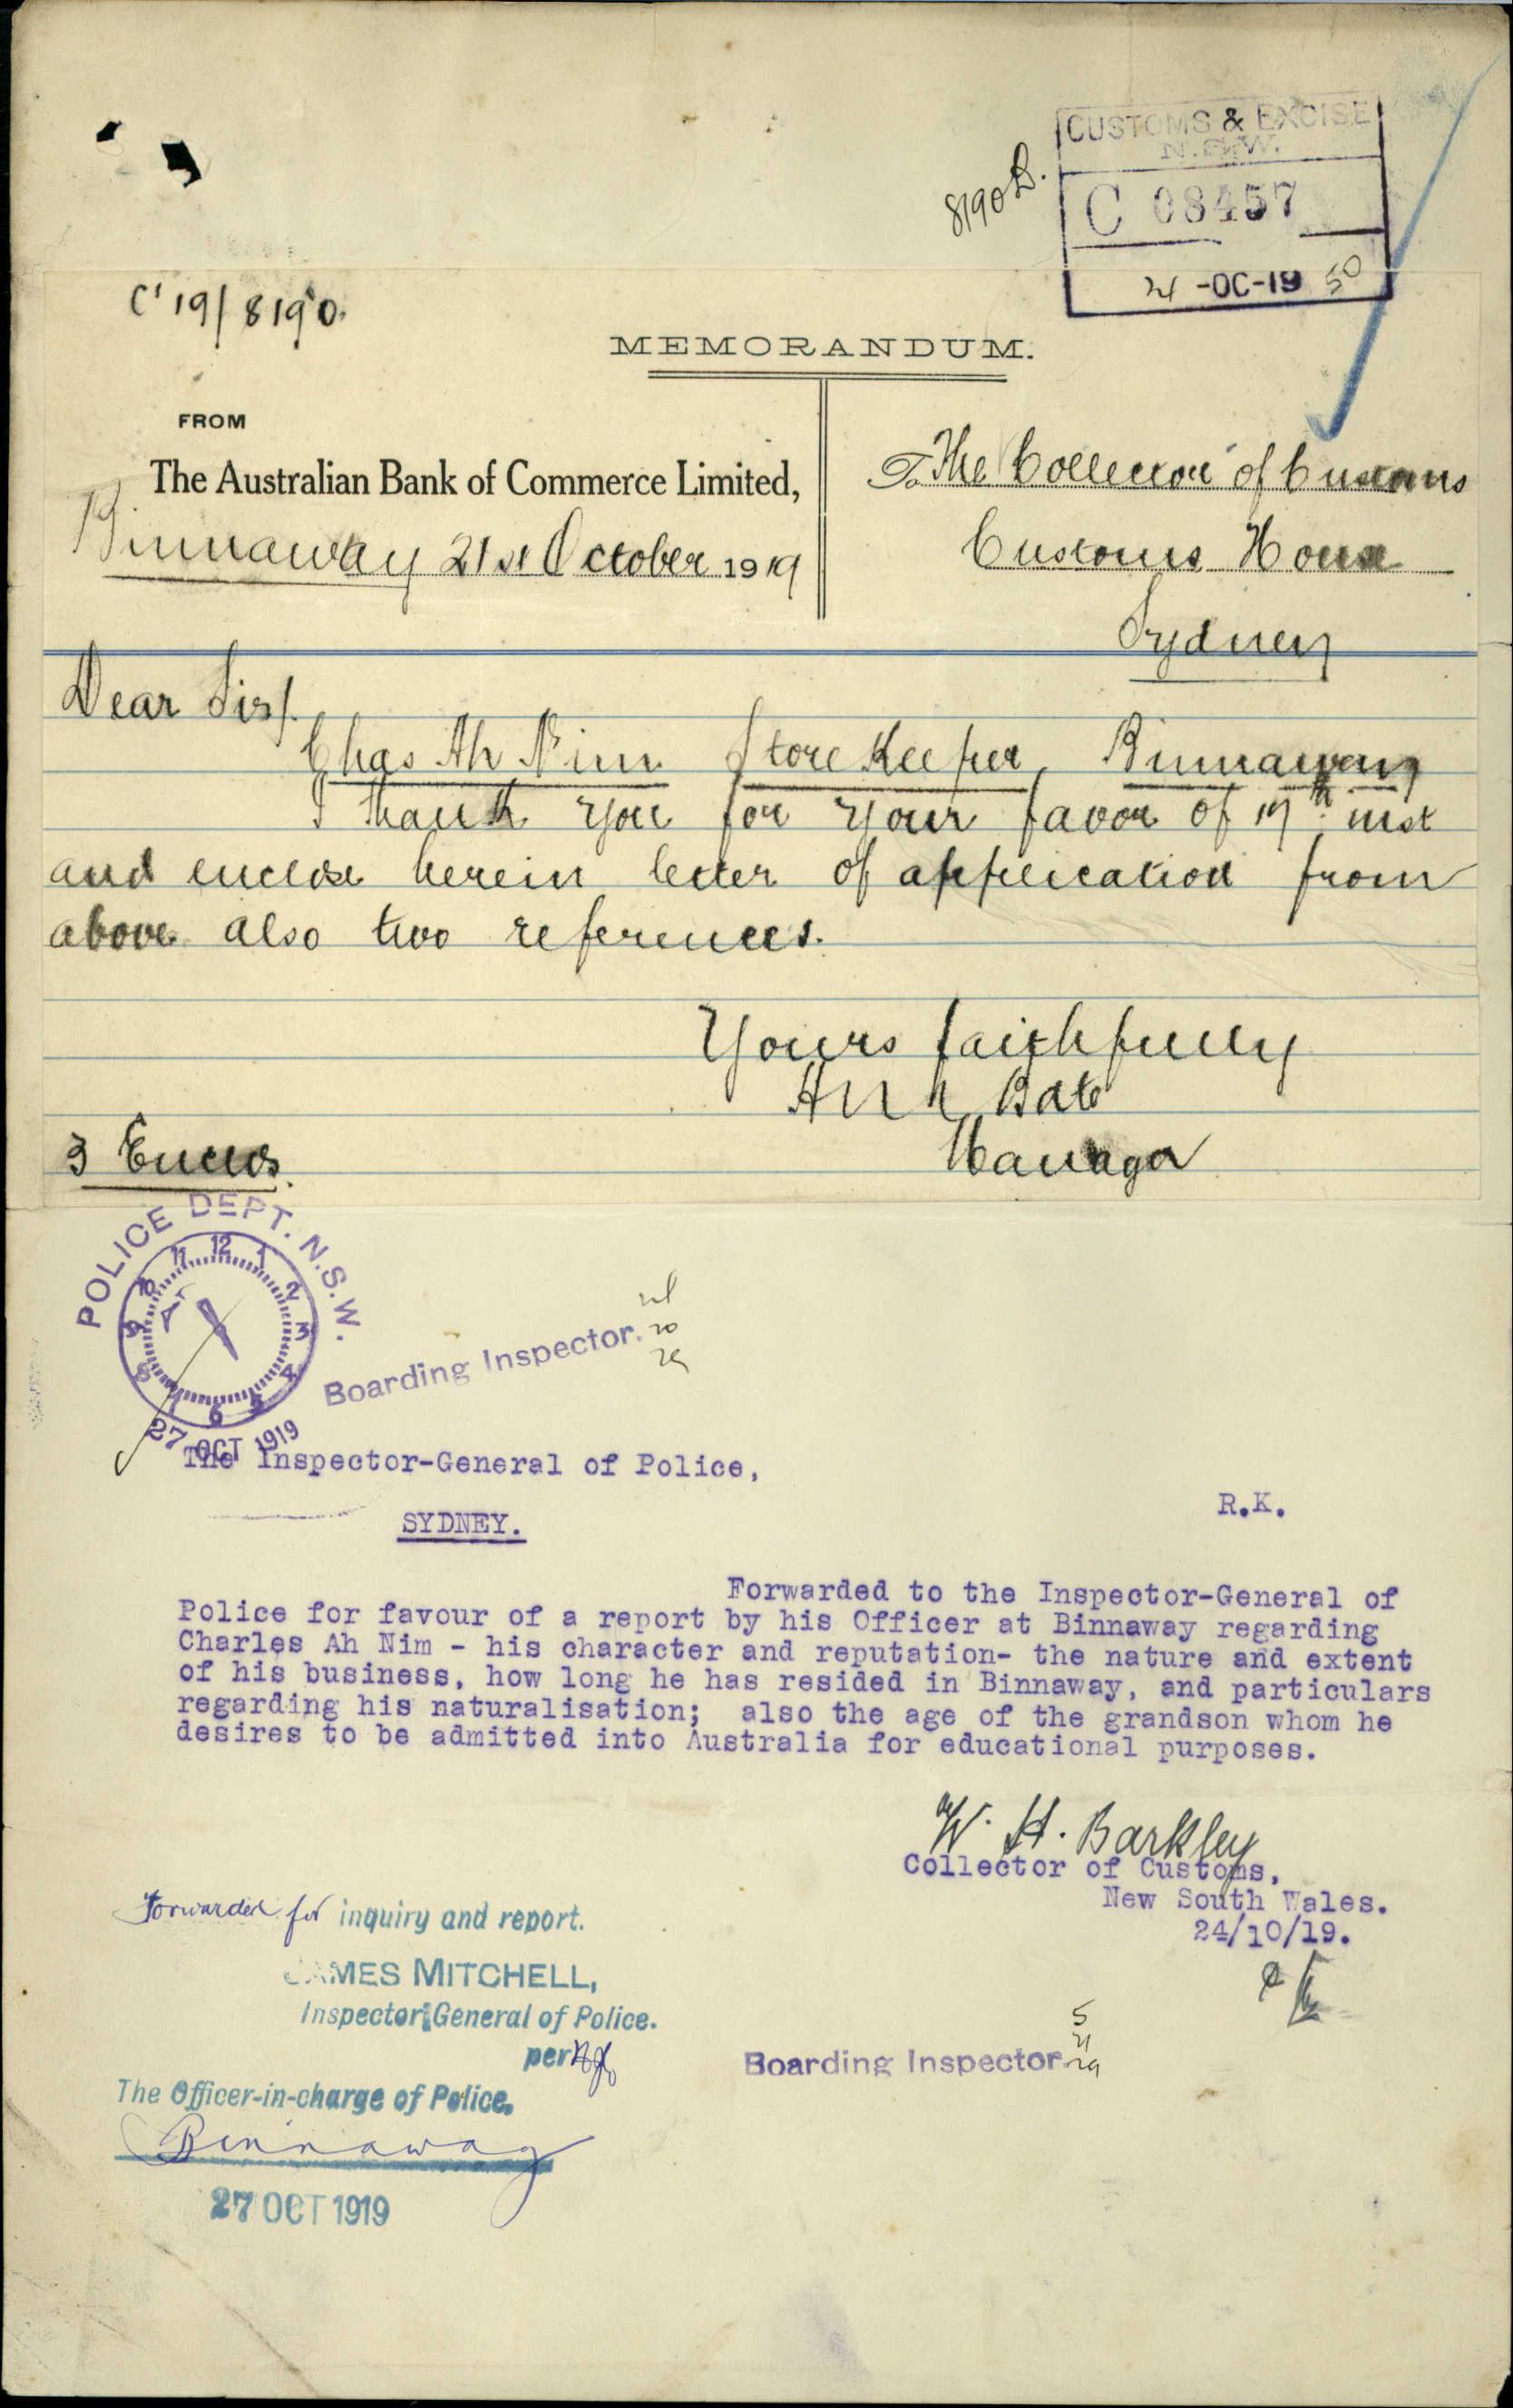 CUSTOMS & EXCISE
N.S.W.
8190
C 08457
-OC-19
C'19/8190.
MEMORANDUM.
FROM
The Australian Bank of Commerce Limited,
Binnaway 21st October 1919
To The Collector of Customs
Customs House
Sydney
Dear Sir/.
Chas Ah Nim Store Keeper, Binnaway
I thank you for your favor of inst
and enclose herein letter of application from
above also two references.
Yours faithfully
Bate
Manager
3 Enclos.
POLICE DEPT. N.S.W.
12 1 2 3 4 5 6 7 8 9 10 11
27 OCT 1919
Boarding Inspector.
The Inspector-General of Police,
SYDNEY.
R.K.
Forwarded to the Inspector-General of
Police for favour of a report by his Officer at Binnaway regarding
Charles Ah Nim - his character and reputation- the nature and extent
of his business, how long he has resided in Binnaway, and particulars
regarding his naturalisation; also the age of the grandson whom he
desires to be admitted into Australia for educational purposes.
W. H. Barkley
Collector of Customs,
New South Wales.
24/10/19.
Forwarded for inquiry and report.
JAMES MITCHELL,
Inspector General of Police.
per
Boarding Inspector
The Officer-in-charge of Police.
Binnaway
27 OCT 1919